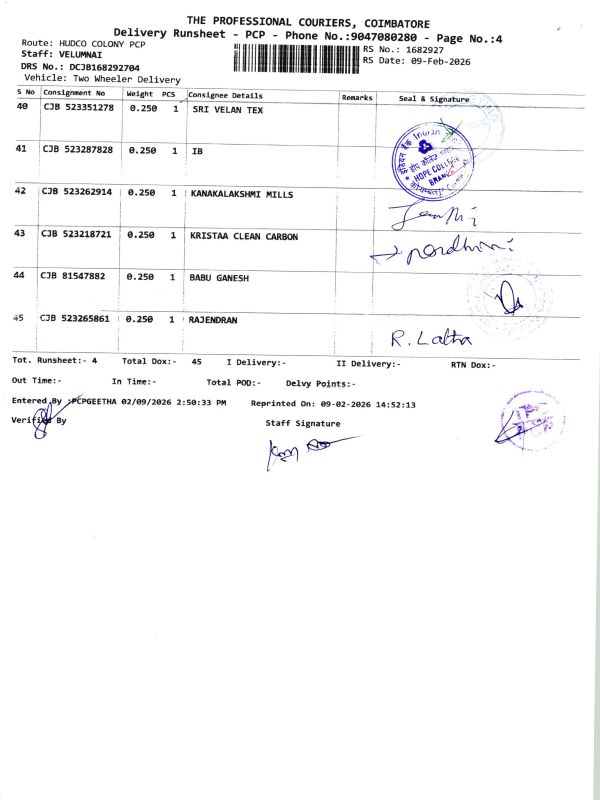 THE PROFESSIONAL COURIERS, COIMBATORE
Delivery Runsheet - PCP - Phone No.:9047080280 - Page No.:4
Route: HUDCO COLONY PCP
RS No.: 1682927
Staff: VELUMNAI
RS Date: 09-Feb-2026
DRS No.: DCJB168292704
Vehicle: Two Wheeler Delivery
S No Consignment No Weight PCS Consignee Details Remarks Seal & Signature
40 CJB 523351278 0.250 1 SRI VELAN TEX
41 CJB 523287828 0.250 1 IB
इंडियन बैंक Indian
HOPE COLLEGE
BRANCH
42 CJB 523262914 0.250 1 KANAKALAKSHMI MILLS
43 CJB 523218721 0.250 1 KRISTAA CLEAN CARBON
44 CJB 81547882 0.250 1 BABU GANESH
45 CJB 523265861 0.250 1 RAJENDRAN
R. Latha
Tot. Runsheet:- 4 Total Dox:- 45 I Delivery:- II Delivery:- RTN Dox:-
Out Time:- In Time:- Total POD:- Delvy Points:-
Entered By :PCPGEETHA 02/09/2026 2:50:33 PM Reprinted On: 09-02-2026 14:52:13
Verified By
Staff Signature